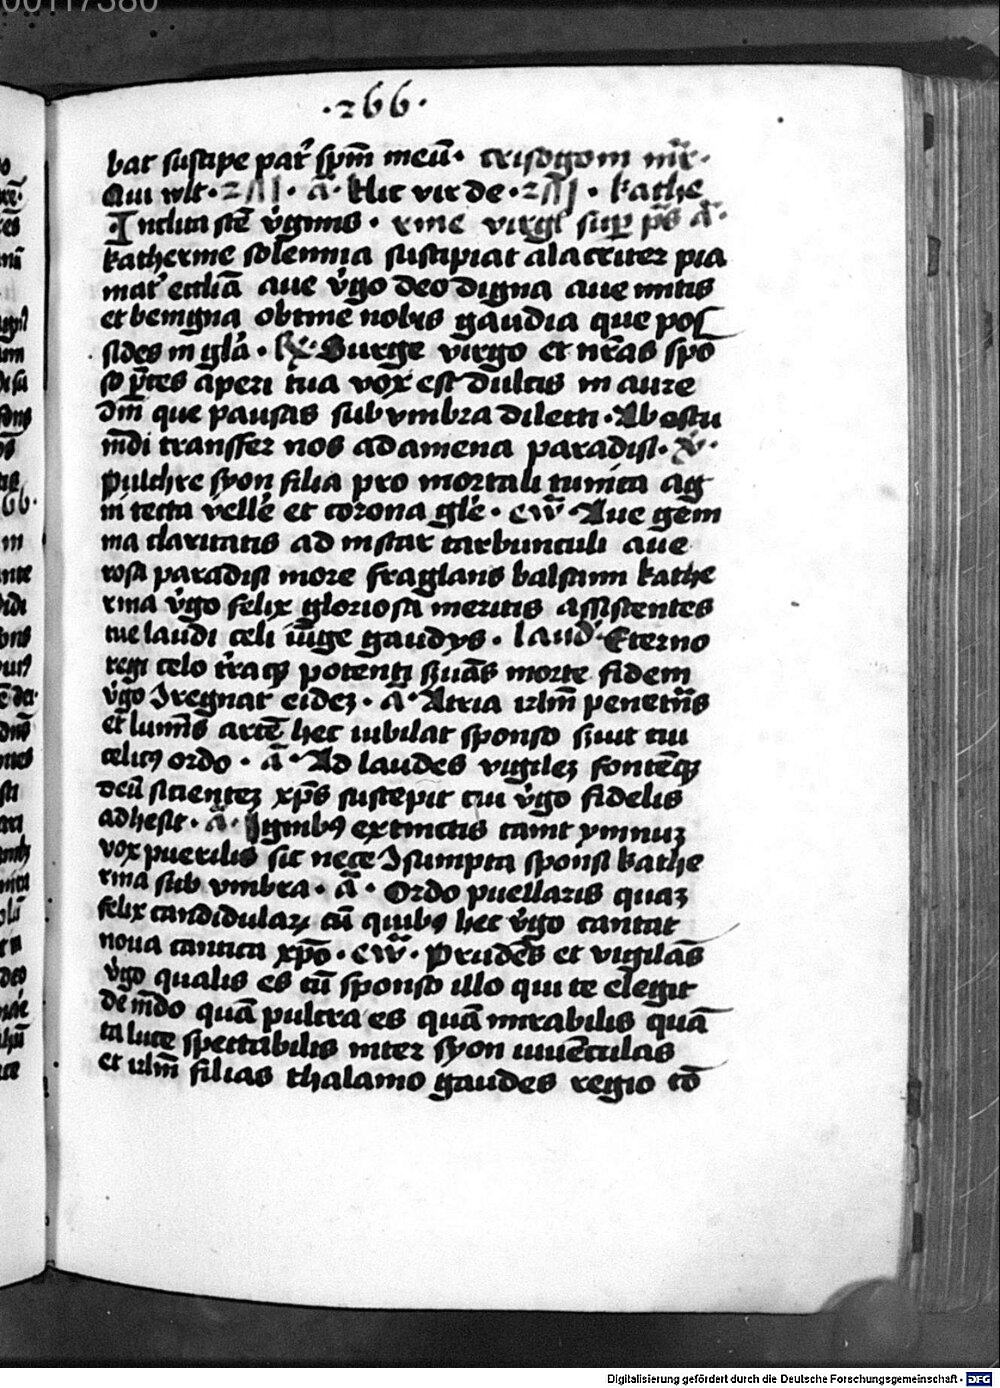 ·266·
bat suscipe pat᷑ sp̄m meū · crisogoni mr̄is·
Qui vult · ā · Hic vir de · kathe
Inclita stē v̊ginis · rine virg̅ sup̱ ps̄ ā·
katherine solennia suscipiat alacriter pia
mat᷑ eccl̄iā aue v̊go deo digna aue mitis
et benigna obtine nobis gaudia que pos
sides in gl̄a · R̷ Surge virgo et nr̄as spō
so p̄ces aperi tua vox est dulcis in aure
dn̄i que pausas sub vmbra dilecti · Ab estu
mūdi transfer nos ad amena paradisi · V̷·
pulchre syon filia pro mortali tunica ag
ni tecta vellē et corona glē · ew̄ · Aue gem
ma claritatis ad instar carbunculi aue
rosa paradisi more fraglans balsami kathe
rina v̊go felix gloriosa meritis assistentes
tue laudi celi iūge gaudys · laud᷑ Eterno
regi celo tr̄aqꝫ potenti s̄uās morte fidem
v̊go Iregnat eideꝫ · ā · Atria ihrlm̄ penetrās
et lumīs arcē hec iubilat sponso sicut tui
celicꝰ ordo · ā · Ad laudes vigileꝫ fontēqꝫ
deū sicienteꝫ xp̄s suscepit cui v̊go fidelis
adhesit · ā · Ignibꝰ extinctis canit ymnuꝫ
vox puerilis sic nece Isumpta sponsi kathe
rina sub vmbra · ā · Ordo puellaris quaꝫ
felix candidularꝫ cū quibꝰ hec v̊go cantat
noua cantica xp̄o · ew̄ · Prudēs et vigilās
v̊go qualis es cū sponso illo qui te elegit
de mūdo quā pulcra es quā mirabilis quā
ta luce spectabilis inter syon iuuēculas
et ihrlm̄ filias thalamo gaudes regio cō
Digitalisierung gefördert durch die Deutsche Forschungsgemeinschaft - DFG